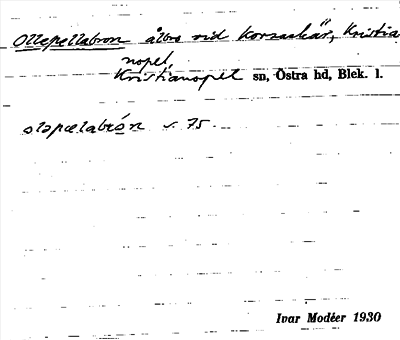 Ollepellabron ålbro vid Korsaskär, Kristia
nopel,
Kristianopel sn, Östra hd, Blek. l.
ołəpælabrón s. 75.
Ivar Modéer 1930